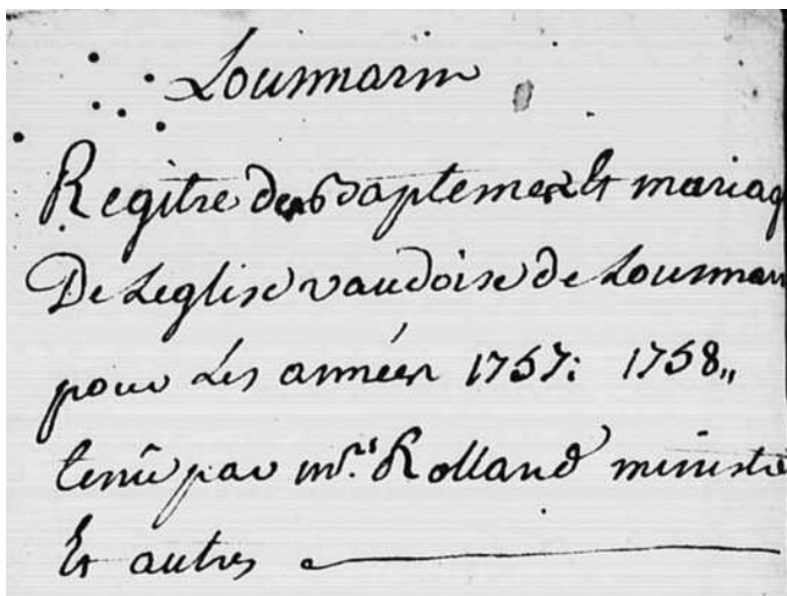 Lourmarin
Regitre des baptemes Et mariag
De Leglise vaudoise de Lourmar
pour Les années 1757: 1758,,
tenû par mrs. Rolland ministre
Et autres